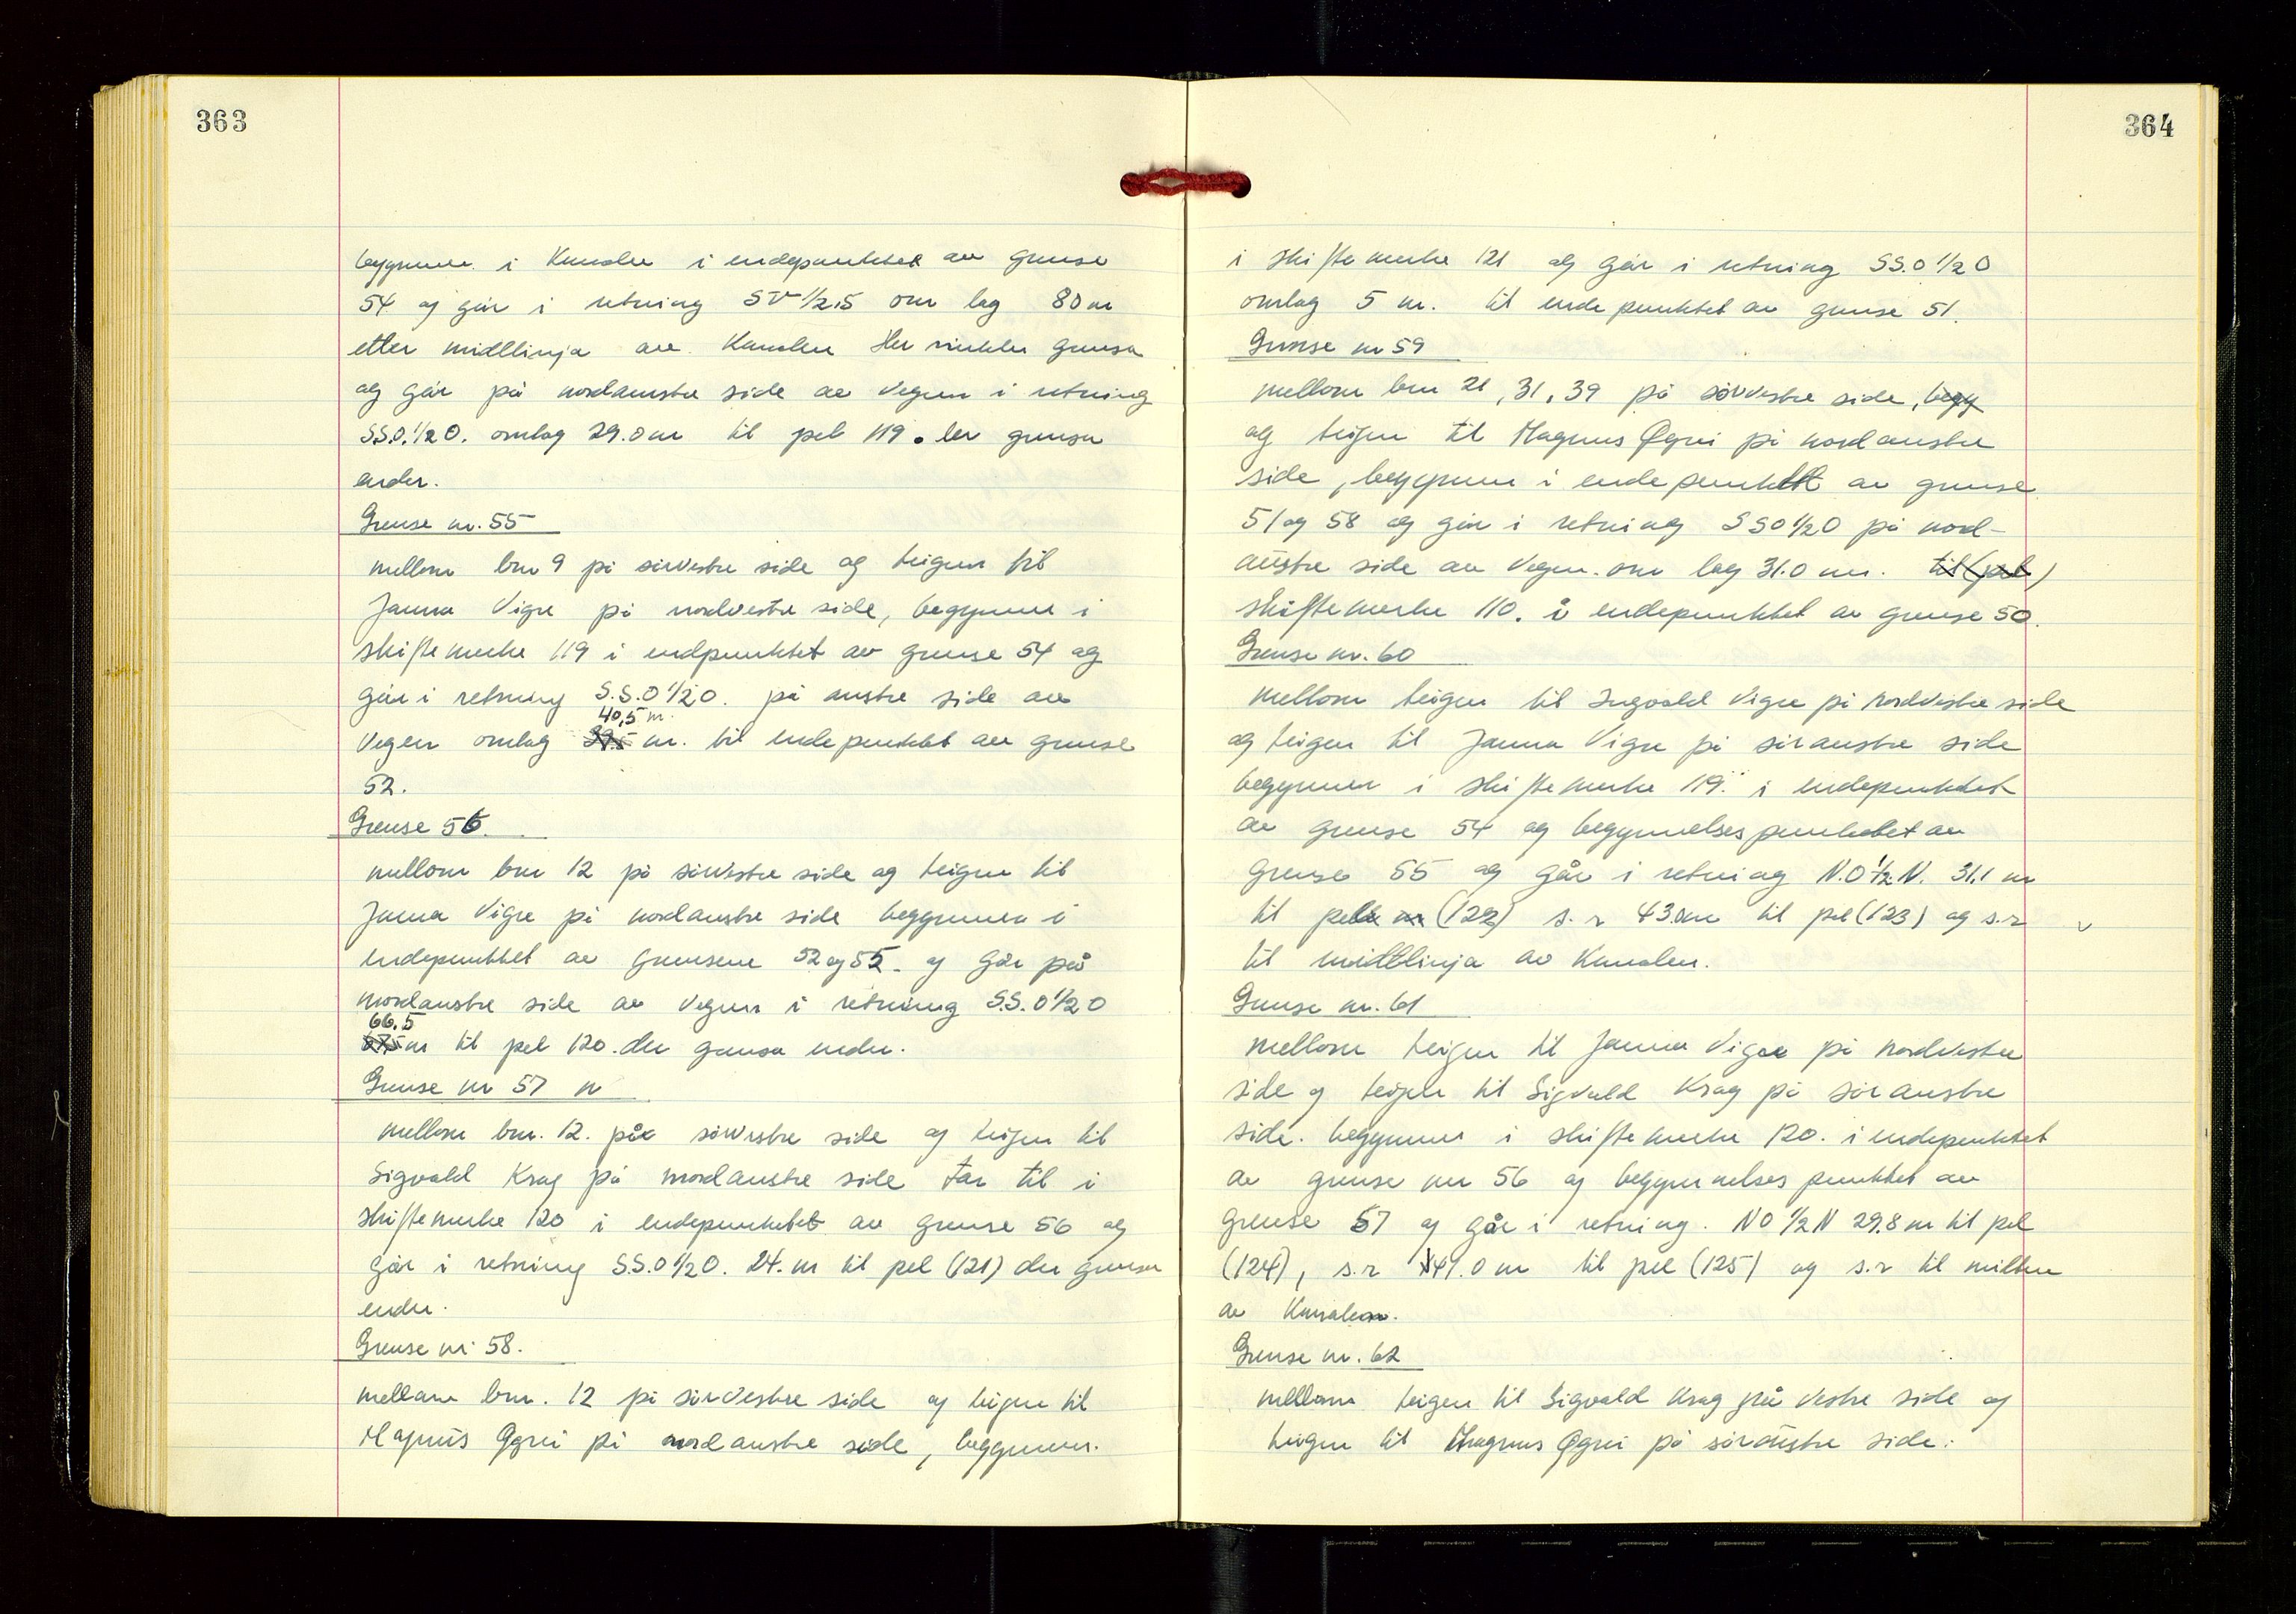 363
begynner i Kanalen i endepunktet av grense
54 og går i retning SV 1/2 S om lag 80 m
etter midtlinja av Kanalen Her vinkler grensa
og går på nordaustre side av Vegen i retning
S.S.O. 1/2 O. omlag 29.0 m til pel 119. der grensa
ender.
Grense nr. 55
mellom bnr 9 på sørvestre side og teigen til
Janna Vigre på nordvestre side, begynner i
skiftemerke 119 i endpunktet av grense 54 og
går i retning S.S.O 1/2 O. på austre side av
40,5 m.
Vegen omlag 39.5 m. til endepunktet av grense
52.
Grense 56.
mellom bnr 12 på sørvestre side og teigen til
Janna Vigre på nordaustre side begynner i
endepunktet av grensene 52 og 55. og går på
nordaustre side av Vegen i retning S.S.O 1/2 O
66.5
67.5 m til pel 120. der grensa ender.
Grense nr 57
mellom bnr. 12. på sørvestre side og teigen til
Sigvald Krag på nordaustre side tar til i
skiftemerke 120 i endepunktet av grense 56 og
går i retning S.S.O 1/2 O. 24. m til pel (121) der grensa
ender.
Grense nr 58.
mellom bnr. 12 på sørvestre side og teigen til
Magnus Øgrei på nordaustre side, begynner.
364
i skiftemerke 121 og går i retning SS.O 1/2 O
omlag 5 m. til endepunktet av grense 51.
Grense nr 59
mellom bnr 21, 31, 39 på sørvestre side, begy
og teigen til Magnus Øgrei på nordaustre
side, begynner i endepunktet av grense
51 og 58 og går i retning SSO 1/2 O på nord-
austre side av Vegen. om lag 31.0 m. til (pel)
skiftemerke 110. i endepunktet av grense 50.
Grense nr. 60
mellom teigen til Ingvald Vigre på nordvestre side
og teigen til Janna Vigre på søraustre side
begynner i skiftemerke 119. i endepunktet
av grense 54 og begynnelsespunktet av
grense 55 og går i retning N.O 1/2 N. 31,1 m
til pel nr (122) s. r 43.0m til pel (123) og s.r
til midtlinja av Kanalen.
Grense nr. 61
mellom teigen til Janna Vigre på nordvestre
side og teigen til Sigvald Krag på søraustre
side. begynner i skiftemerke 120. i endepunktet
av grense nr 56 og begynnelsespunktet av
grense 57 og går i retning. NO 1/2 N 29.8 m til pel
(124), s.r 41.0 m til pel (125) og s.r til midten
av Kanalen.
Grense nr. 62
mellom teigen til Sigvald Krag på vestre side og
teigen til Magnus Øgrei på søraustre side.